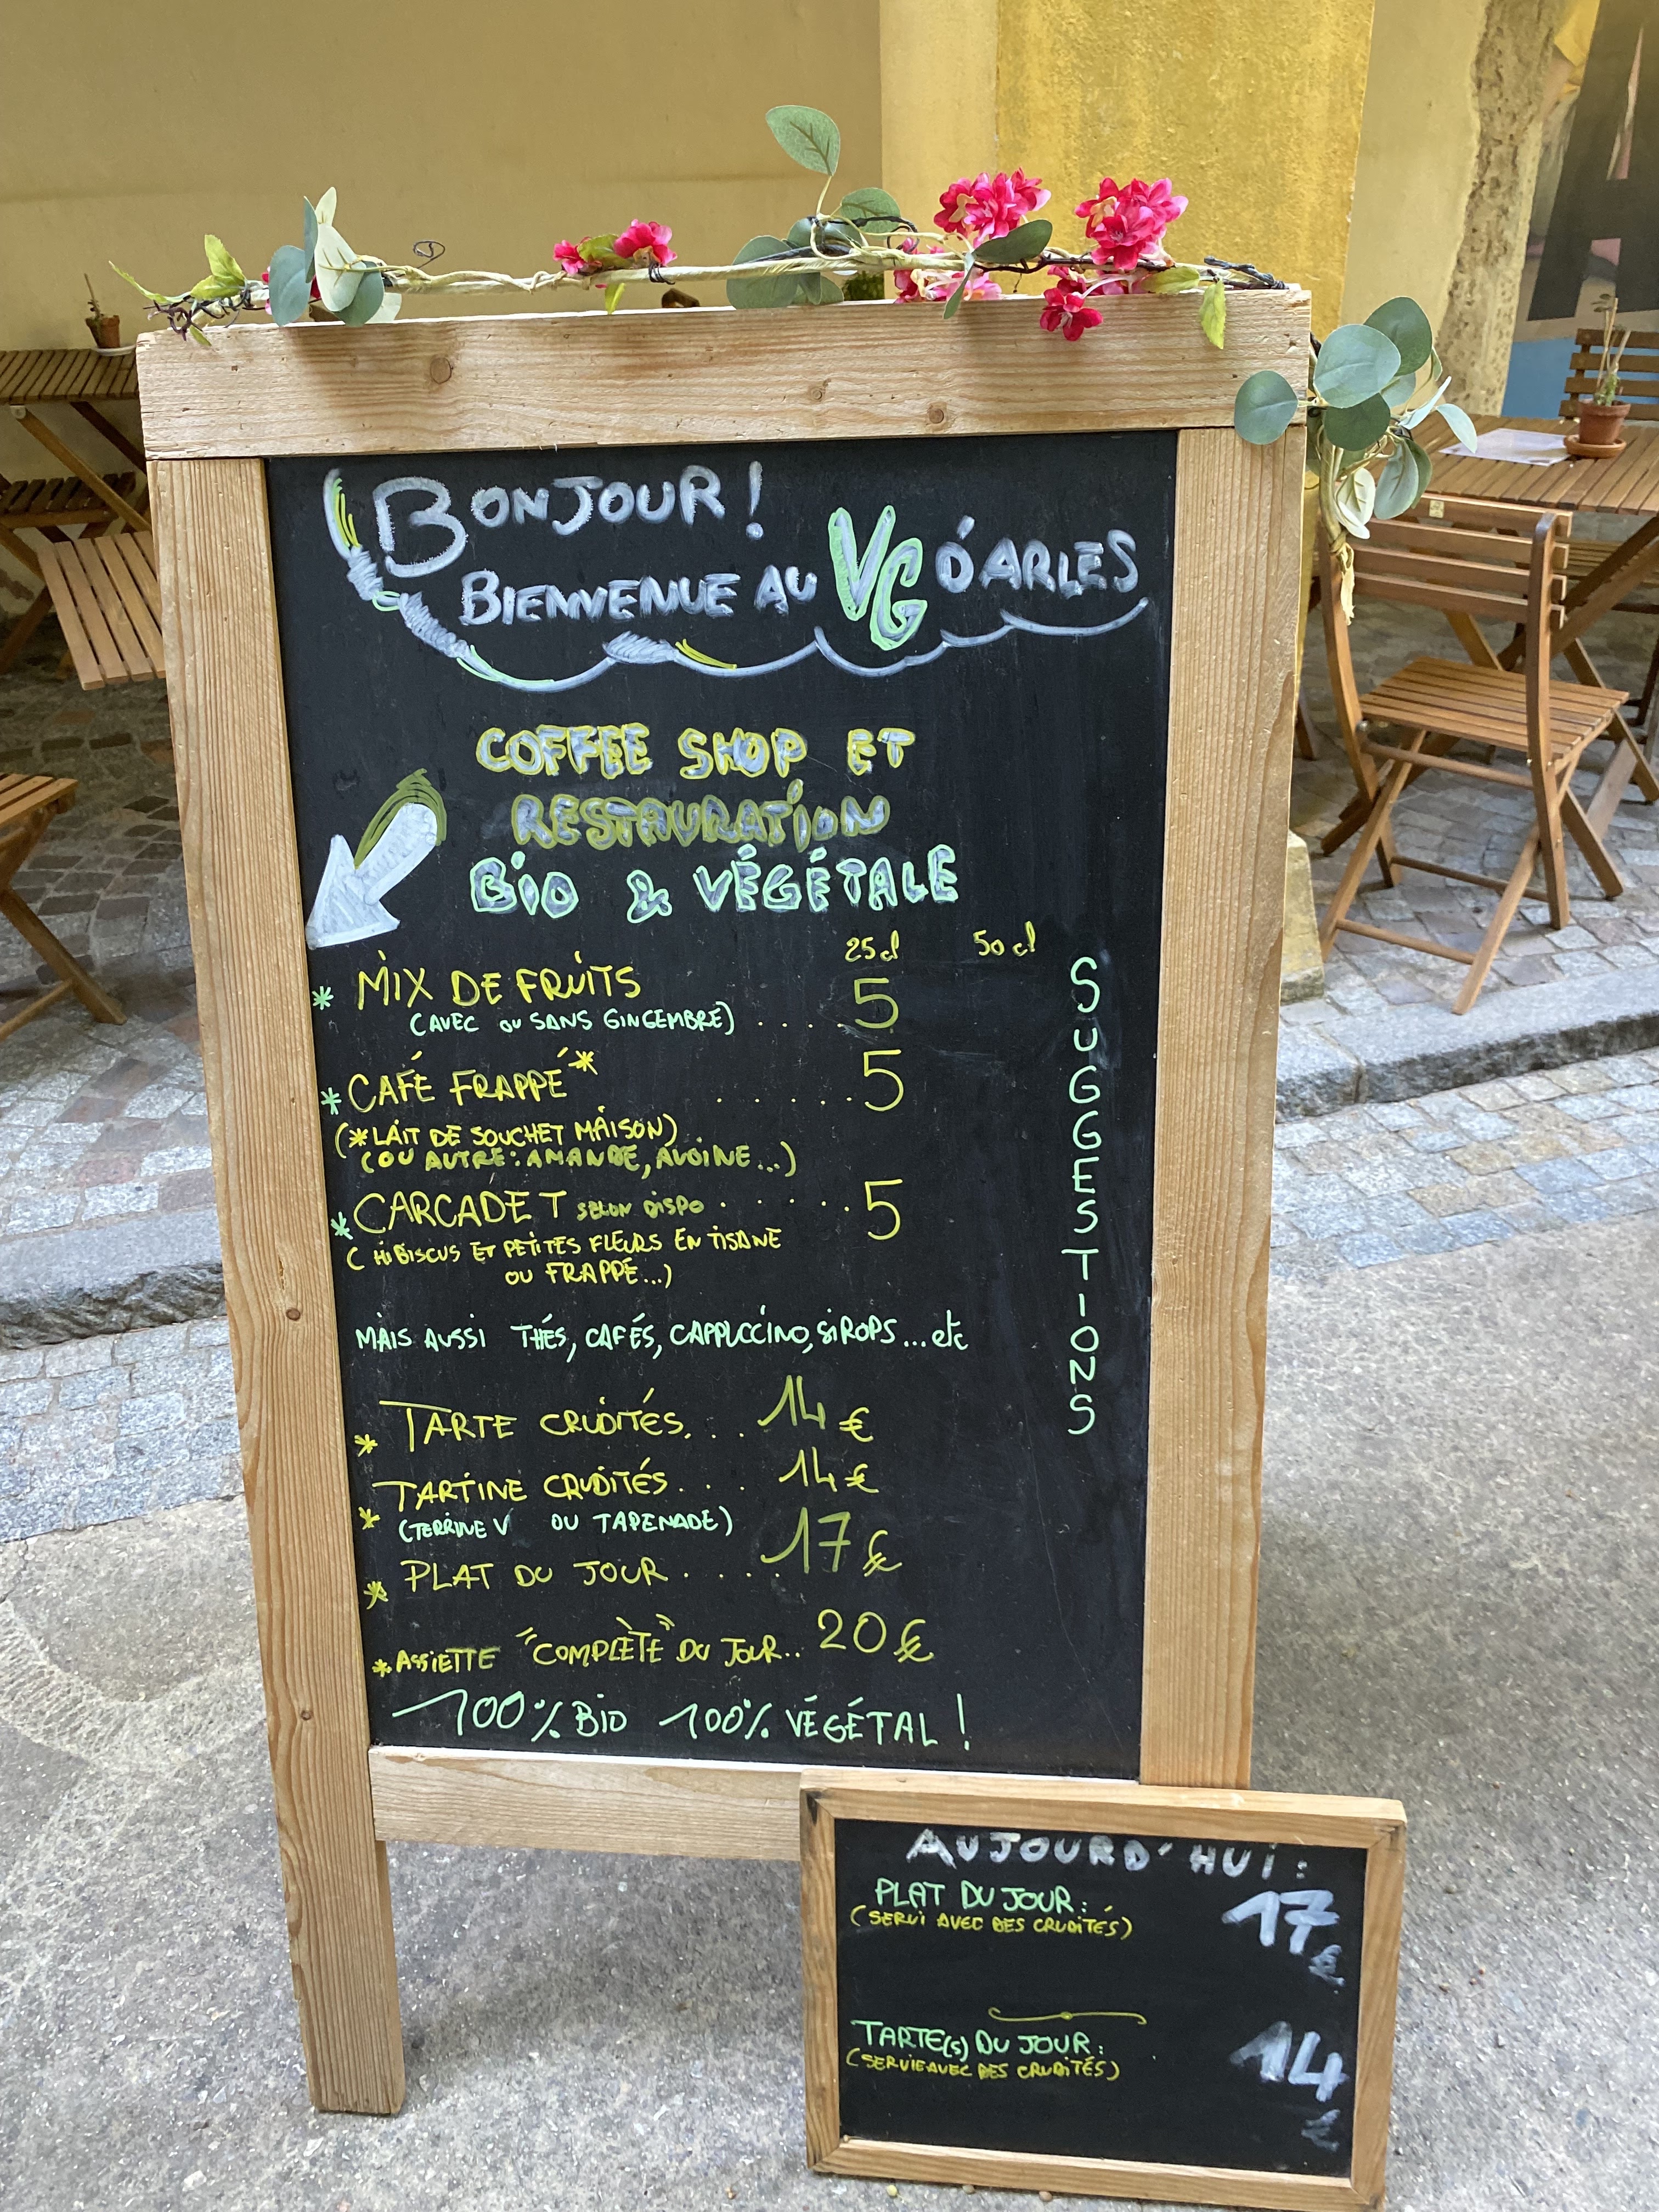 BONJOUR !
BIENVENUE AU VG D'ARLES
COFFEE SHOP ET
RESTAURATION
BIO & VÉGÉTALE
25cl 50cl
* MIX DE FRUITS
(AVEC OU SANS GINGEMBRE) . . . . . 5
* CAFÉ FRAPPÉ* . . . . . . 5
(*LAIT DE SOUCHET MAISON)
(OU AUTRE : AMANDE, AVOINE...)
* CARCADET SELON DISPO . . . . . 5
(HIBISCUS ET PETITES FLEURS EN TISANE
OU FRAPPÉ...)
MAIS AUSSI THÉS, CAFÉS, CAPPUCCINO, SIROPS...etc
* TARTE CRUDITÉS. . . 14 €
* TARTINE CRUDITÉS. . . 14 €
(TERRINE V OU TAPENADE)
* PLAT DU JOUR . . . . . 17 €
* ASSIETTE "COMPLÈTE" DU JOUR.. 20 €
100% BIO 100% VÉGÉTAL !
SUGGESTIONS
AUJOURD'HUI :
PLAT DU JOUR : 17 €
(SERVI AVEC DES CRUDITÉS)
TARTE(S) DU JOUR : 14 €
(SERVIE AVEC DES CRUDITÉS)